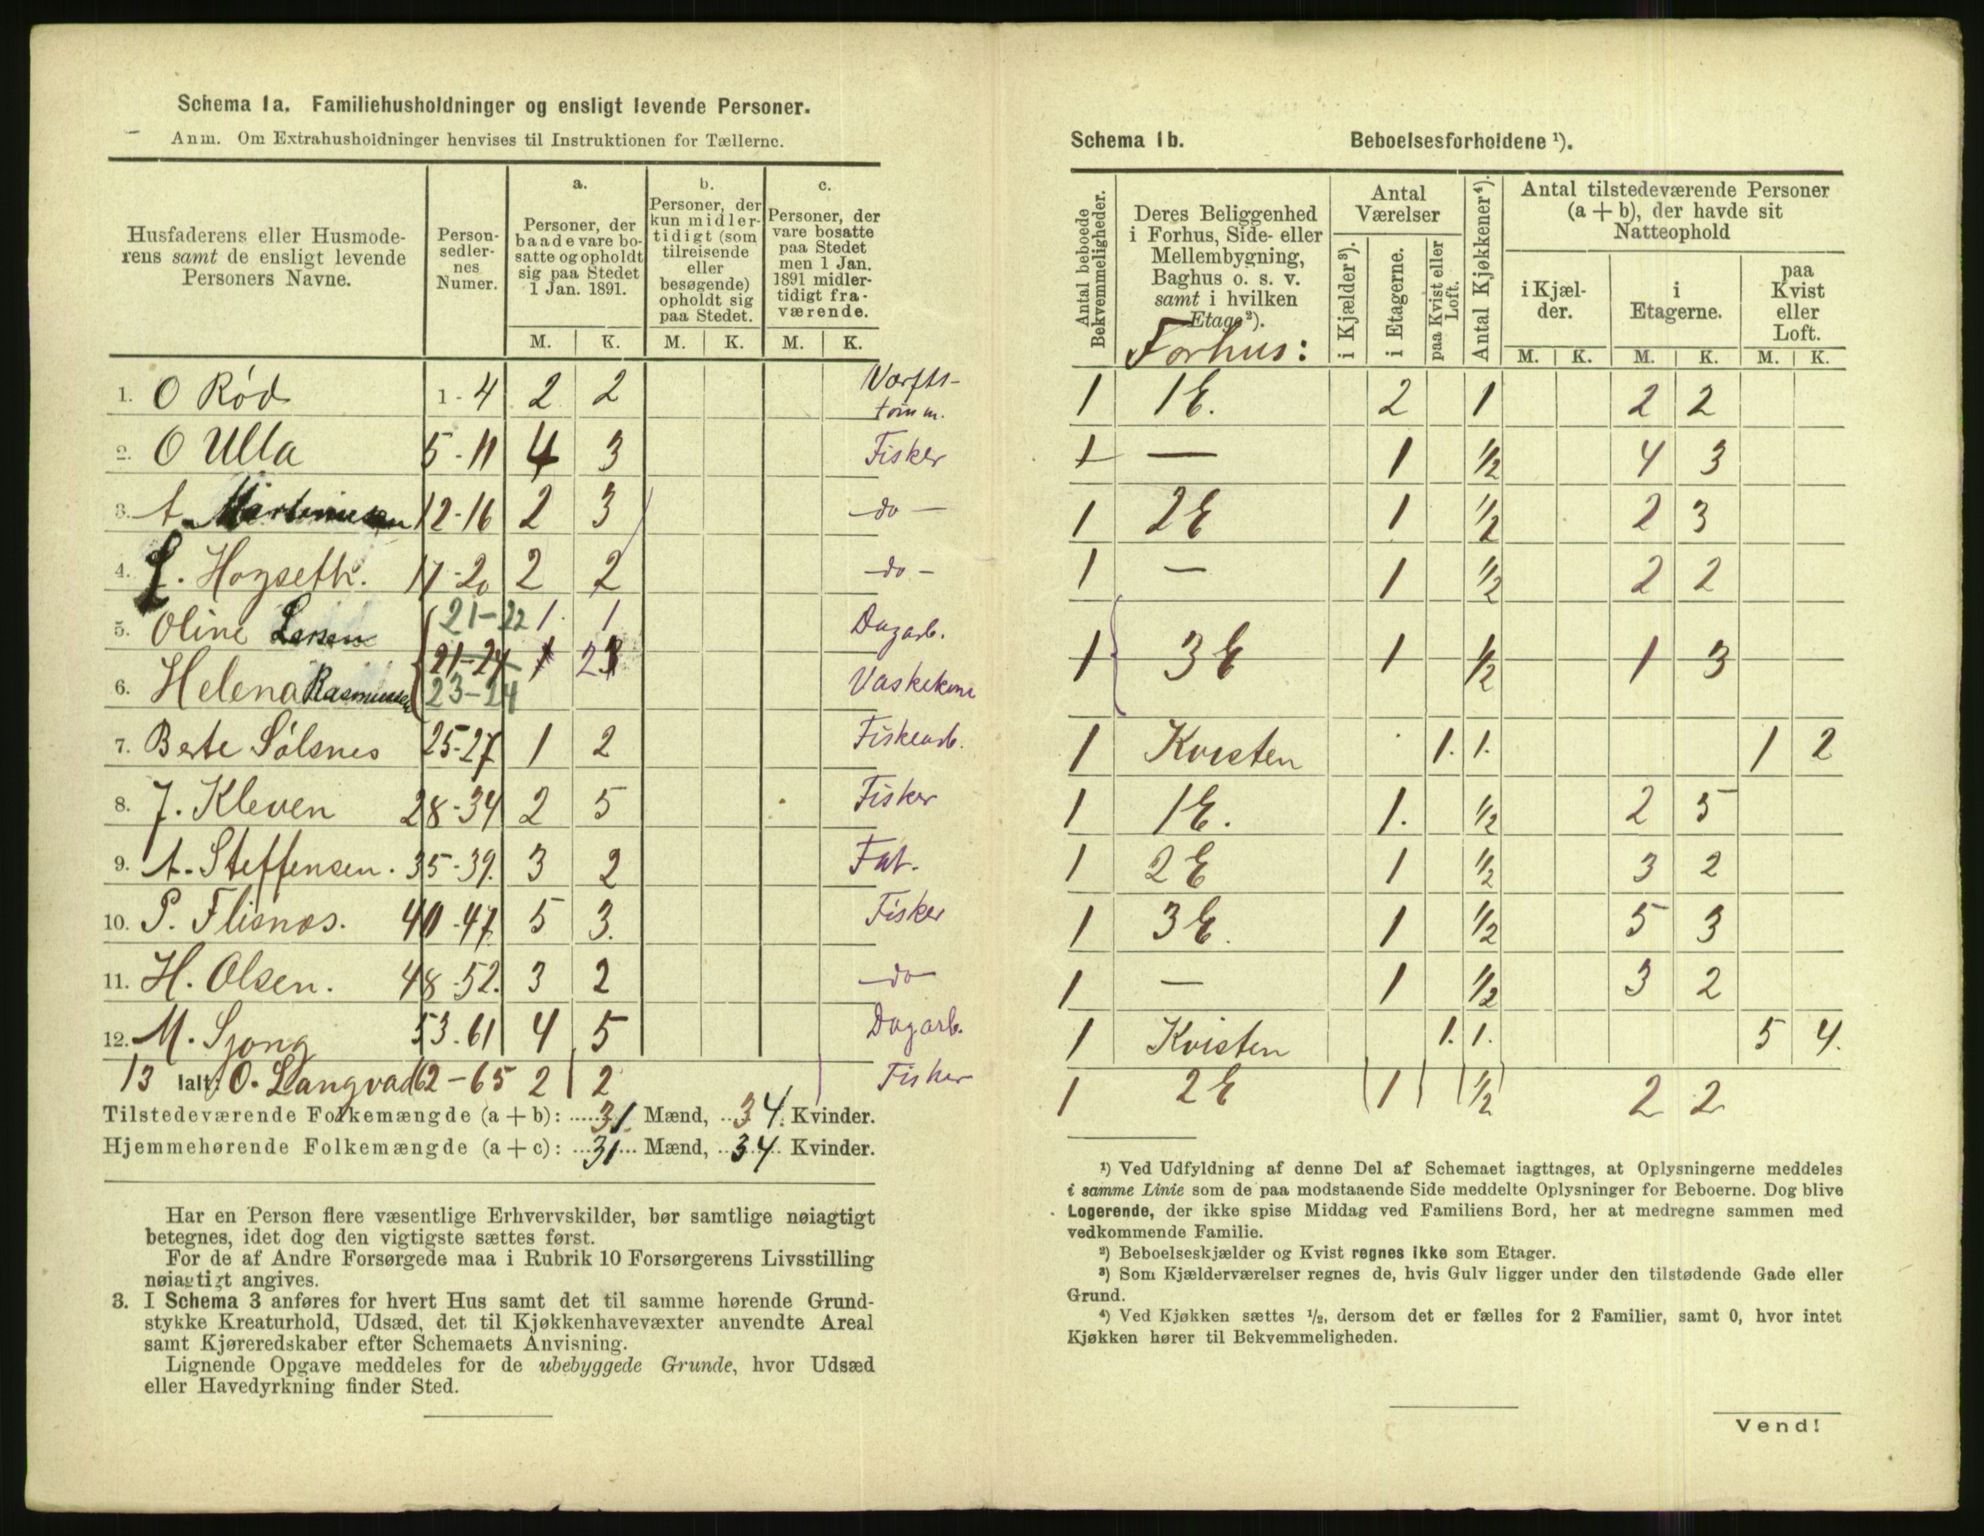 Schema 1a. Familiehusholdninger og ensligt levende Personer.
Anm. Om Extrahusholdninger henvises til Instruktionen for Tællerne.
Husfaderens eller Husmode-
rens samt de ensligt levende
Personers Navne.
Person-
sedler-
nes
Numer.
a.
Personer, der
baade vare bo-
satte og opholdt
sig paa Stedet
1 Jan. 1891.
b.
Personer, der
kun midler-
tidigt (som
tilreisende
eller
besøgende)
opholdt sig
paa Stedet.
c.
Personer, der
vare bosatte
paa Stedet
men 1 Jan.
1891 midler-
tidigt fra-
værende.
M. K. M. K. M. K.
1. O Rød 1-4 2 2 Værfts-
tømm.
2. O Ulla 5-11 4 3 Fisker
3. A. Martinusen 12-16 2 3 do
4. Hogseth. 17-20 2 2 do
5. Oline Larsen 21-22 1. 1 Dagarb.
21-24 1 2
6. Helena Rasmussen 23-24 Vaskekone
7. Berte Sølsnes 25-27 1 2 Fiskearb.
8. J. Kleven 28-34 2 5 Fisker
9. A. Steffensen. 35-39. 3 2 Fat.
10. P. Flisnæs. 40-47. 5 3. Fisker
11. H. Olsen. 48-52. 3 2 do
12. M. Sjong 53-61 4 5 Dagarb.
13 Ialt: O. Langvad 62-65 2 2 Fisker
Tilstedeværende Folkemængde (a + b): 31 Mænd, 34. Kvinder.
Hjemmehørende Folkemængde (a + c): 31 Mænd, 34 Kvinder.
Har en Person flere væsentlige Erhvervskilder, bør samtlige nøiagtigt
betegnes, idet dog den vigtigste sættes først.
For de af Andre Forsørgede maa i Rubrik 10 Forsørgerens Livsstilling
nøiagtigt angives.
3. I Schema 3 anføres for hvert Hus samt det til samme hørende Grund-
stykke Kreaturhold, Udsæd, det til Kjøkkenhavevæxter anvendte Areal
samt Kjøreredskaber efter Schemaets Anvisning.
Lignende Opgave meddeles for de ubebyggede Grunde, hvor Udsæd
eller Havedyrkning finder Sted.
Schema 1b. Beboelsesforholdene ¹).
Antal beboede
Bekvemmeligheder.
Deres Beliggenhed
i Forhus, Side- eller
Mellembygning,
Baghus o. s. v.
samt i hvilken
Etage²).
Forhus:
Antal
Værelser
i Kjælder³).
i Etagerne.
paa Kvist eller
Loft.
Antal Kjøkkener⁴).
Antal tilstedeværende Personer
(a + b), der havde sit
Natteophold
i Kjæl-
der.
i
Etagerne.
paa
Kvist
eller
Loft.
M. K. M. K. M. K.
1 1E. 2 1 2 2
1 — 1 1/2 4 3
1 2E 1 1/2 2 3
1 — 1 1/2 2 2
1 3E 1 1/2 1 3
1 Kvisten 1. 1. 1 2
1 1E. 1. 1/2 2 5
1 2E 1 1/2 3 2
1 3E. 1 1/2 5 3
1 — 1 1/2 3 2
1 Kvisten 1. 1. 5 4.
1 2E 1 1/2 2 2
¹) Ved Udfyldning af denne Del af Schemaet iagttages, at Oplysningerne meddeles
i samme Linie som de paa modstaaende Side meddelte Oplysninger for Beboerne. Dog blive
Logerende, der ikke spise Middag ved Familiens Bord, her at medregne sammen med
vedkommende Familie.
²) Beboelseskjælder og Kvist regnes ikke som Etager.
³) Som Kjælderværelser regnes de, hvis Gulv ligger under den tilstødende Gade eller
Grund.
⁴) Ved Kjøkken sættes ½, dersom det er fælles for 2 Familier, samt 0, hvor intet
Kjøkken hører til Bekvemmeligheden.
Vend!